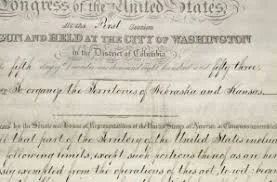 Congress of the United States,
At the First Session
GUN AND HELD AT THE CITY OF WASHINGTON
in the District of Columbia
the fifth day of December one thousand eight hundred and fifty three.
To organize the Territories of Nebraska and Kansas.
by the Senate and House of Representatives of the United States of America in Congress assembled
that part of the Territory of the United States inclu
following limits, except such portions thereof as are he
exempted from the operations of this act, to wit: